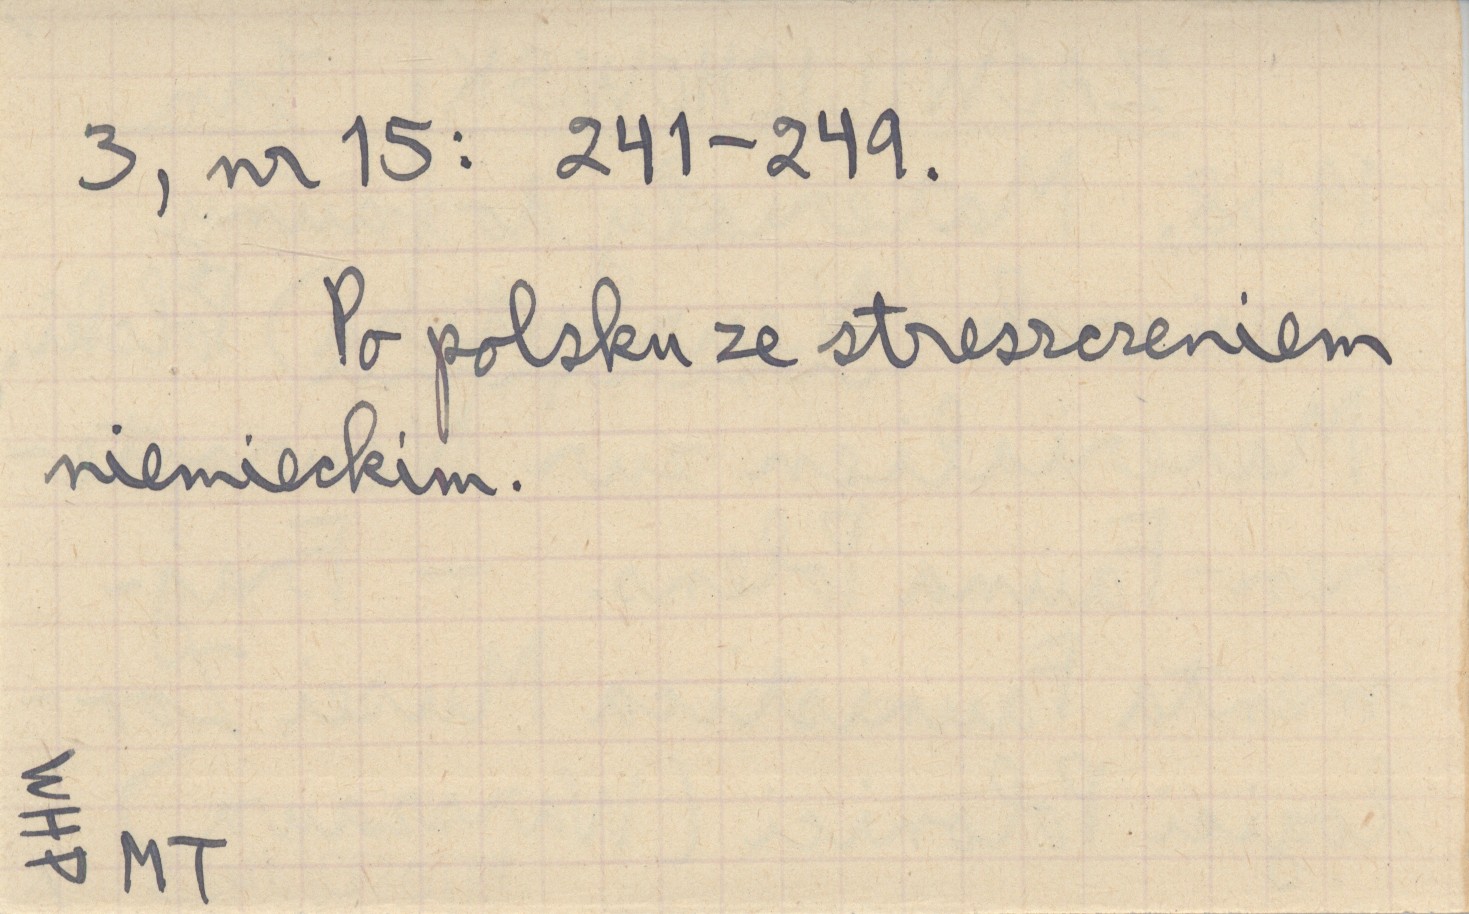 3, nr 15: 241-249.
Po polsku ze streszczeniem
niemieckim.
WHP
MT